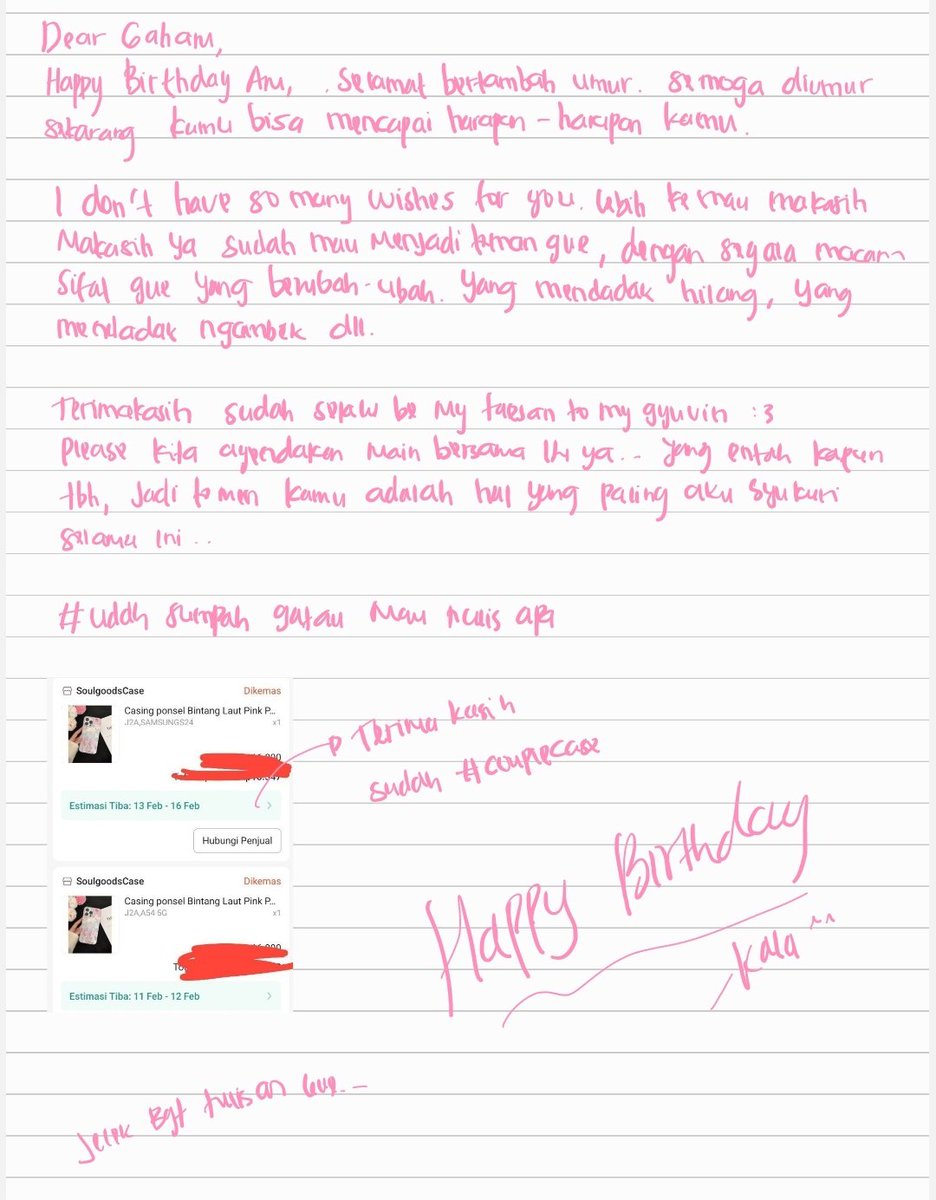 Dear Gaham,
Happy Birthday Am, . Selamat bertambah umur. semoga diumur
sekarang kamu bisa mencapai harapan - harapan kamu.
I don't have so many wishes for you. Lebih ke mau makasih
Makasih ya sudah mau Menjadi teman gue, dengan segala macam
Sifat gue yang berubah-ubah. Yang mendadak hilang, yang
mendadak ngambek dll.
Terimakasih sudah be My taesan to my gyuvin :3
Please kita agendakan Main bersama ya.. yang entah kapan
tbh, Jadi temen kamu adalah hal yang paling aku syukuri
selama ini ..
#uddh sumpah gatau Mau nulis apa
SoulgoodsCase
Dikemas
Casing ponsel Bintang Laut Pink P...
J2A,SAMSUNGS24
x1
Terima kasih
sudah #couplecase
Estimasi Tiba: 13 Feb - 16 Feb
Hubungi Penjual
SoulgoodsCase
Dikemas
Casing ponsel Bintang Laut Pink P...
J2A,A54 5G
x1
Estimasi Tiba: 11 Feb - 12 Feb
Happy Birthday
Kala ^^
Jelek Bgt tulisan gue.-